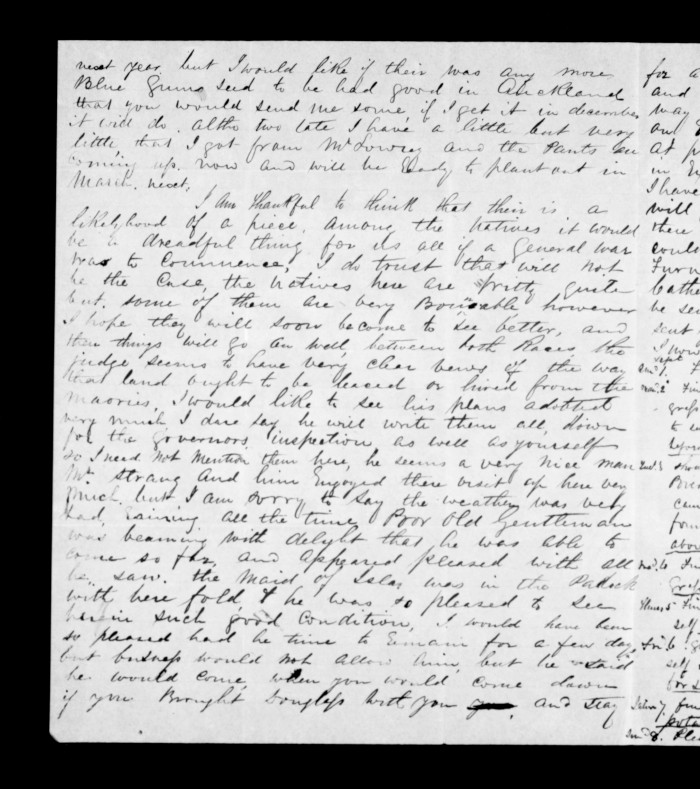 next year, but I would like if their was any more
Blue Gums seed to be had good in Auckland
that you would send me some, if I get it in december
it will do. altho two late I have a little but very
little, that I got from Mr Lowrey and the Plants are
coming up. now and will be Ready to plant out in
March. next,
I Am thankful to think that their is a
likelyhood of a piece, among the Natives it would
be a dreadful thing for us all if a General war
was to Commence, I do trust that will not
be the Case, the Natives here are pritty quite
but some of them are very however
I hope they will soon become to see better, and
then things will go on well, between both Races the
judge seems to have very clear vews of the way
that land ought to be leaced or hired from the
maories, I would like to see his plans adobted
very much, I dare say he will write them all, down
for the Governors, inspection, as well as yourself
so I need Not Mention them here, he seems a very Nice man
Mr Strang And him Enjoyed there visit up here very
Much. but I am Sorry to Say the weather was very
bad, raining all the time, Poor Old Gentleman
was beaming with delight that he was able to
come so far, and Appeared pleased with all
he saw. the Maid of Islay was in the Padock
with here fold, & he was so pleased to See
her in Such good Condition, I would have been
so pleased had he time to Remain for a few days
but busness would Not allow him, but he said
he would come, when you would come down
if you Brought Douglass with you and Stay
for a
and
way
our
At
in
I have
will
there
could
Furn
be se
sent
I wou
Sept